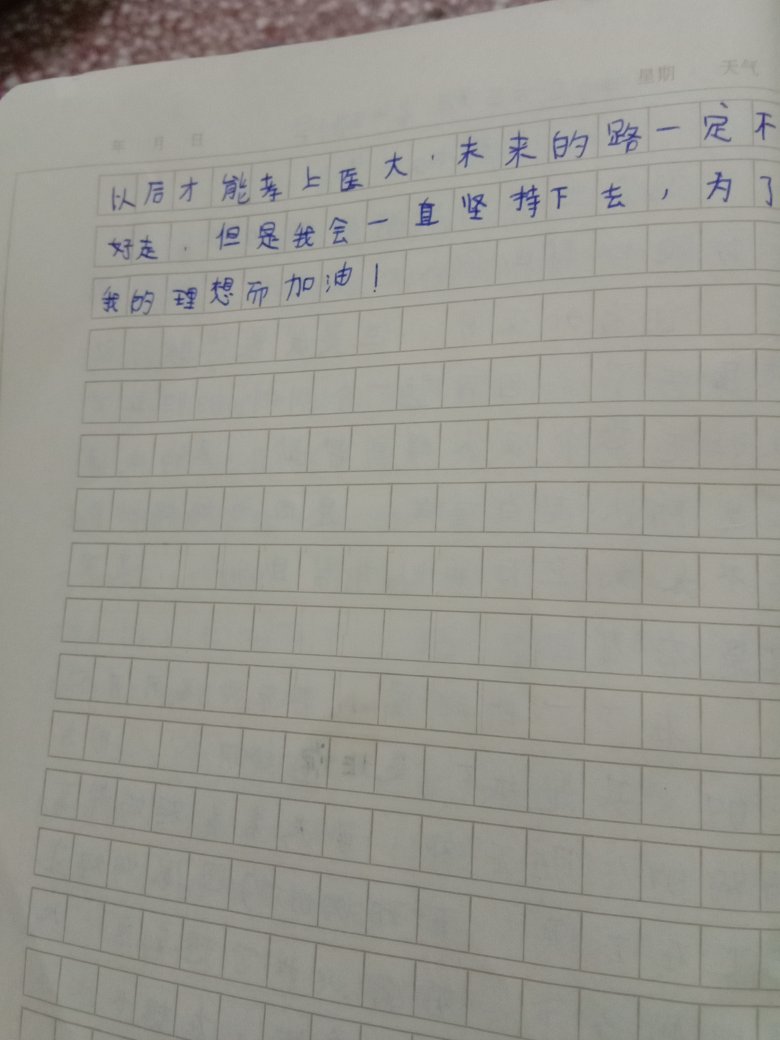 星期 天气
年 月 日
以后才能考上医大．未来的路一定不
好走．但是我会一直坚持下去，为了
我的理想而加油！